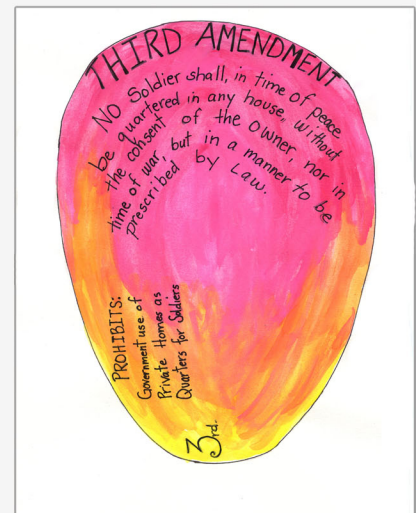 THIRD AMENDMENT
No Soldier shall, in time of peace
be quartered in any house, without
the consent of the Owner, nor in
time of war, but in a manner to be
prescribed by Law.
PROHIBITS:
Government use of
Private Homes as
Quarters for Soldiers
3rd.